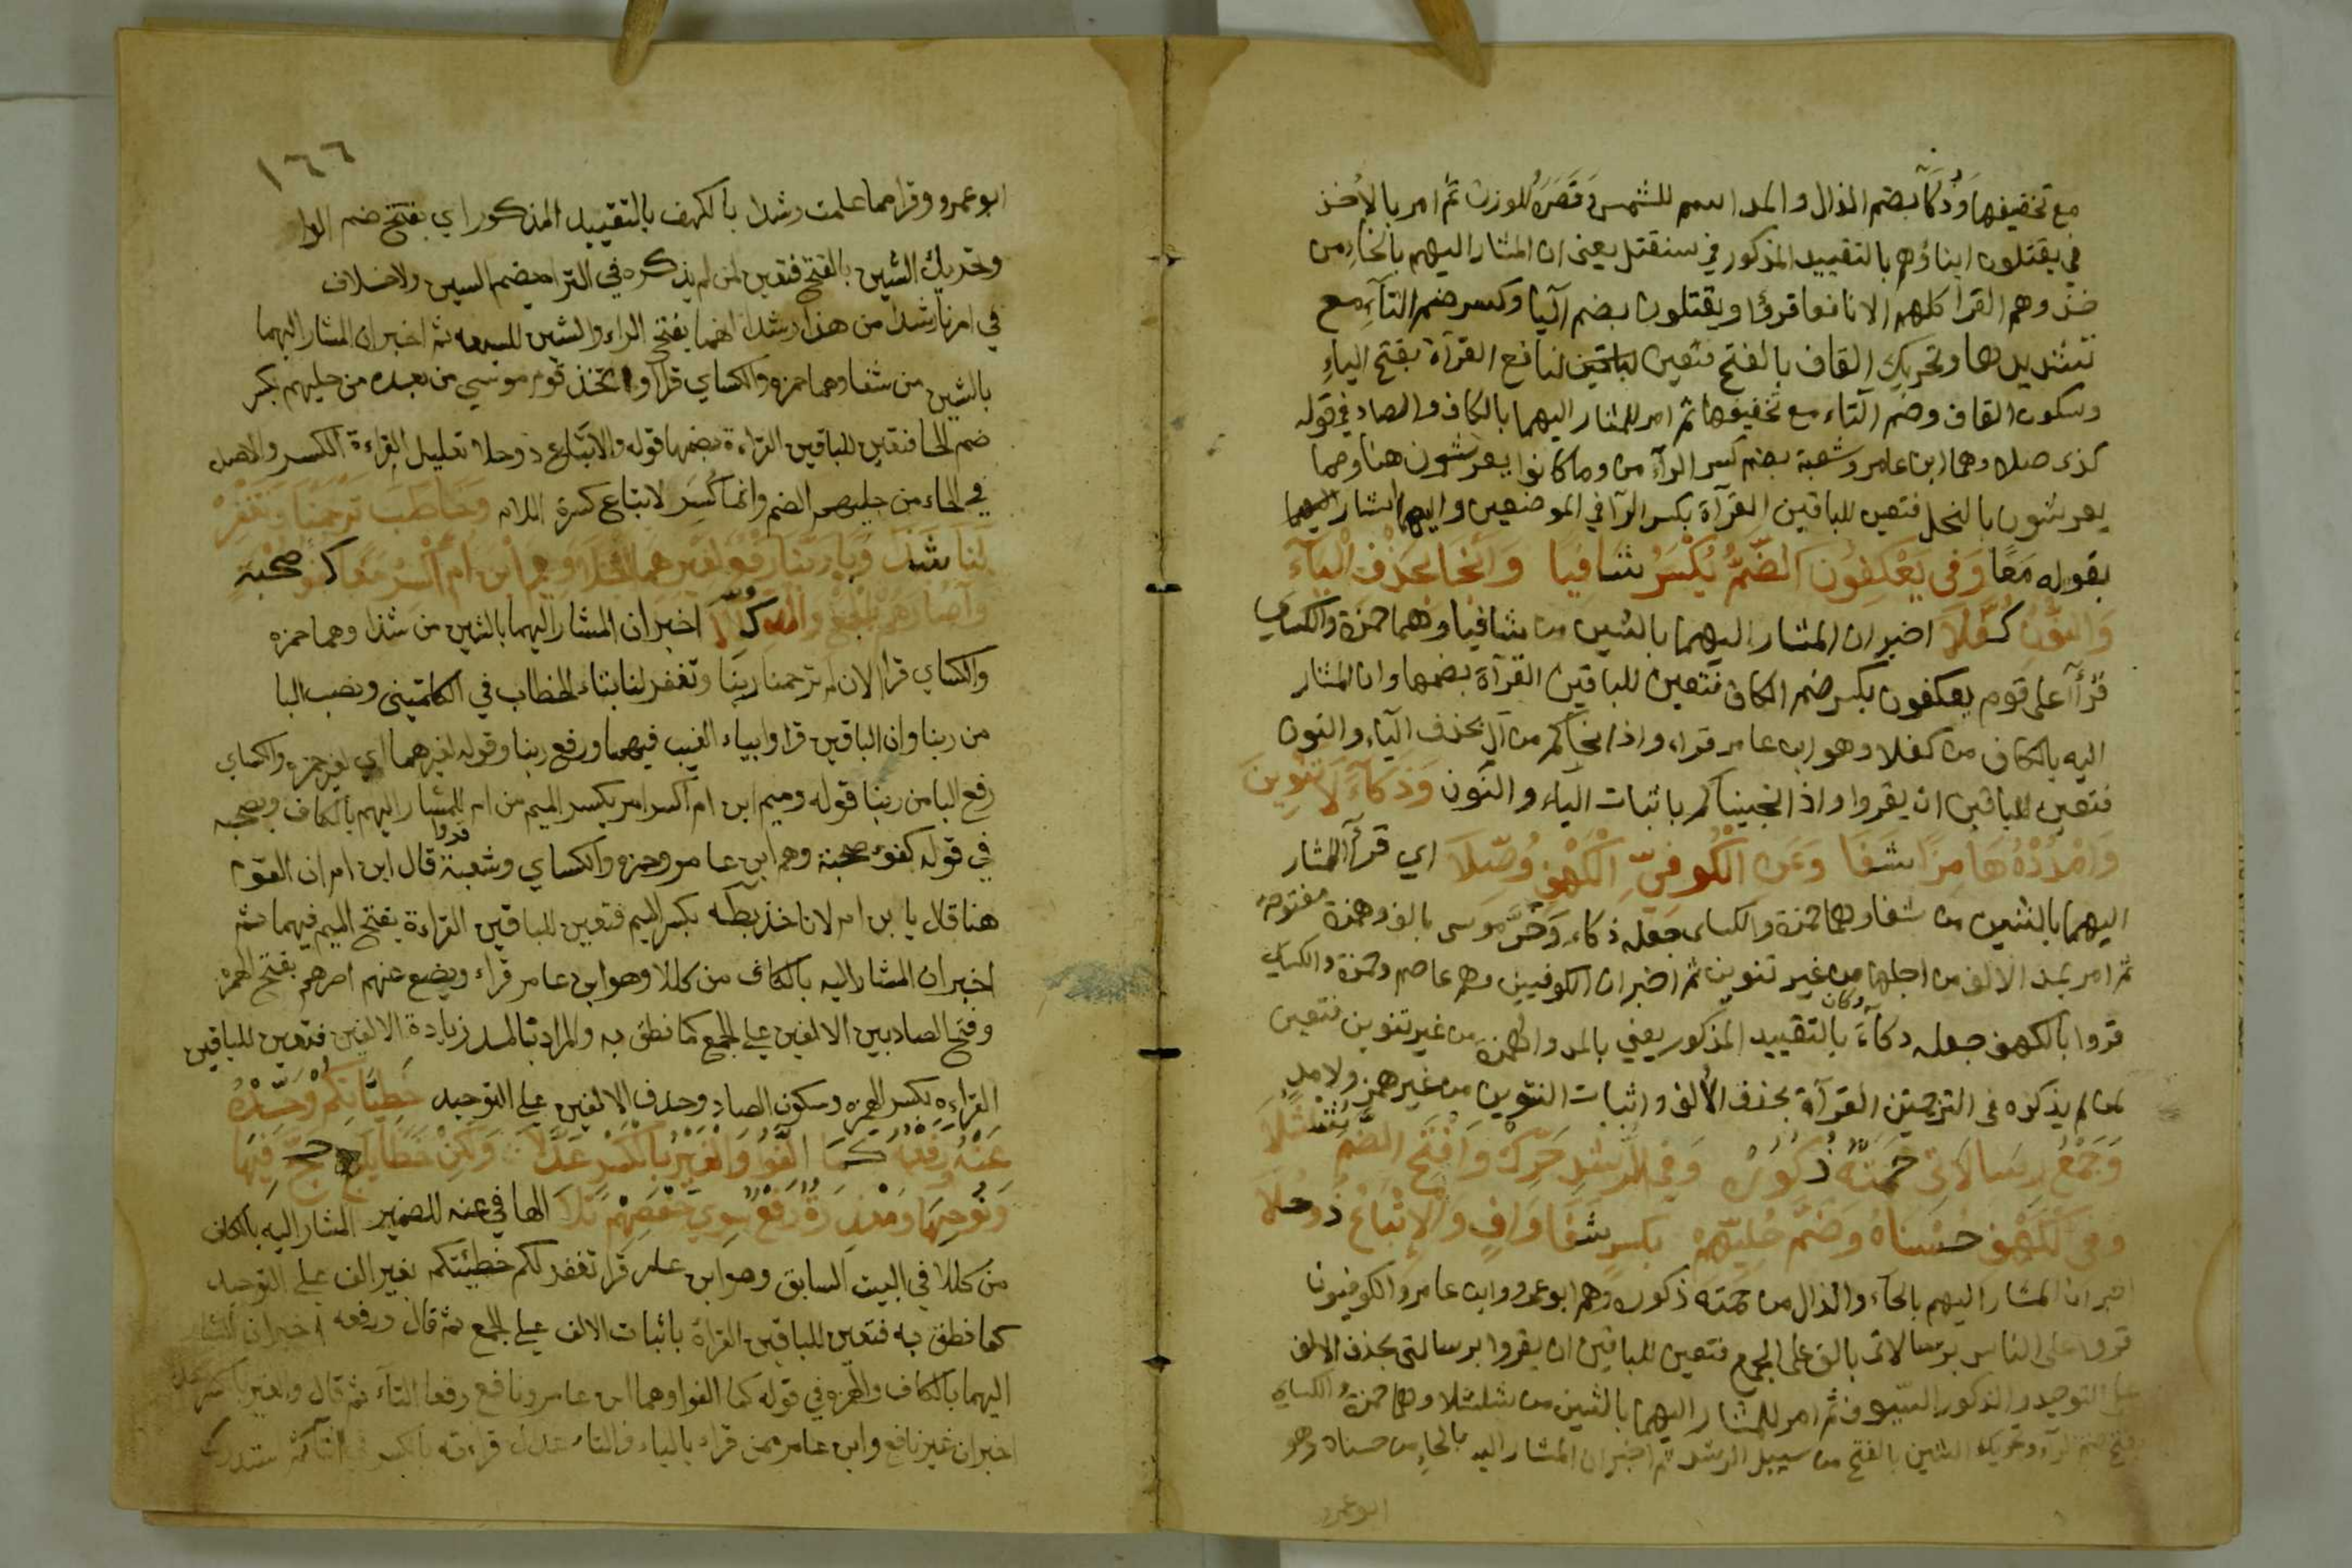 مع تخفيفها وذكآ بضم الذال والمد اسم للشمس وقصره للوزن ثم امر بالأخذ
في يقتلون ابناؤهم بالتقييد المذكور في سنقتل يعني ان المشار اليهم بالخاء من
خذ وهم القرا كلهم الا نافعا قرؤا ويقتلون بضم اليا وكسر ضم التاء مع
تشديدها وتحريك القاف بالفتح فتعين لنافع القرآة بفتح الياء
وسكون القاف وضم التاء مع تخفيفها ثم امر للمشار اليهما بالكاف والصاد في قوله
كذى صلا وهما ابن عامر وشعبة بضم كسر الرآء من وما كانوا يعرشون هنا ومما
يعرشون بالنحل فتعين للباقين القرآة بكسر الرآ في الموضعين واليهما اشار
بقوله مَعًا وَفى يَعْكِفُونَ الضَّمُّ يُكْسَرُ شافيا وَأنْجَا بحَذْفِ اليآء
وَالنُّونِ كفّلا اخبر ان المشار اليهما بالشين من شافيا وهما حمزة والكساي
قرأآ على قوم يعكفون بكسر ضم الكاف فتعين للباقين القرآة بضمها وان المشار
اليه بالكاف من كفلا وهو ابن عامر قراء واذ انجاكم من آل بحذف اليآء والنون
فتعين للباقين ان يقروا واذ انجيناكم باثبات الياء والنون وَدَكآءَ لا تَنْوِينَ
وَامْدُدْهُ هَامِزًا شَفَا وَعَن الْكُوفىّ في الْكَهْفِ وُصّلا اي قرأ المشار
اليهما بالشين من شفا وهما حمزة والكساى جعله دكاء وَخَرَّ موسى بالف وهمزة مفتوحة
ثم امر بمد الالف من اجلها من غير تنوين ثم اخبر ان الكوفيين وهم عاصم وحمزة والكساي
قروا بالكهف جعله دكآءَ وكان بالتقييد المذكور يعني بالمد والهمزة من غير تنوين فتعين
لمن لم يذكره فى الترجمتين القرآة بحذف الألف واثبات التنوين من غير همز ولا مد
وَجَمْعُ رِسَالاَتى حَمَتْهُ ذُكُورُهُ وَفي الرُّشْدِ حَرِّكْ وَافْتَحِ الضَّمَّ شُلْشُلاَ
وفى الْكَهْفِ حُسْنَاهُ وَضَمُّ حُلِيِّهِمْ بكسرٍ شَفَا وَافٍ وَالاِتْبَاعُ ذُو حُلاَ
اخبر ان المشار اليهم بالحاء والذال من حمته ذكوره وهم ابو عمرو وابن عامر والكوفيون
قروا على الناس برسالاتى بالف على الجمع فتعين للباقين ان يقروا برسالتى بحذف الالف
على التوحيد والذكور السيوف ثم امر للمشار اليهما بالشين من شلشلا وهما حمزة والكساي
بفتح ضم الرآء وتحريك الشين بالفتح من سبيل الرشد ثم اخبر ان المشار اليه بالحاء من حسناه وهو
ابو عمرو
١٦٦
ابو عمرو وقرا مما علمت رشدا بالكهف بالتقييد المذكور اي بفتح ضم الرا
وتحريك الشين بالفتح فتعين لمن لم يذكره في التراجم ضم السين ولا خلاف
في امرنا رشدا من هذا رشدا انهما بفتح الراء والشين للسبعه ثم اخبر ان المشار اليهما
بالشين من شفا وهما حمزه والكساي قرآ واتخذ قوم موسي من بعده من حليهم بكسر
ضم الحا فتعين للباقين القراءة بضمها قوله والاتباع ذو حلا تعليل القراءة الكسر والاصل
في الحاء من حليهم الضم وانما كُسِر لاتباع كسرة اللام وَخَاطَبَ تَرْحَمْنَا وَتَغْفِرْ
لنا شَذَا وَبَا رَبَّنَا رَفْعٌ لغَيْرِهِمَا انْجَلاَ وَمِيمَ ابْنَ أُمَّ اكْسِرْ مَعًا كفْؤَ صحبة
وَآصَارَهُمْ بِالْجَمْعِ وَالْمَدِّ كُلِّلاَ اخبر ان المشار اليهما بالشين من شذا وهما حمزه
والكساي قرا لان لم ترحمنا ربنا وتغفر لنا بتاء الخطاب في الكلمتين ونصب البا
من ربنا وان الباقين قراوا بياء الغيب فيهما ورفع ربنا وقوله لغيرهما اي لغير حمزه والكساي
رفع البا من ربنا قوله وميم ابن ام اكسر امر بكسر الميم من ام للمشار اليهم بالكاف وصحبه
في قوله كفؤ صحبة وهم ابن عامر وحمزه والكساي وشعبة قروا قال ابن ام ان القوم
هنا قال يا بن ام لا تاخذ بكسر الميم فتعين للباقين القراءة بفتح الميم فيهما ثم
اخبر ان المشار اليه بالكاف من كللا وهو ابن عامر قراء ويضع عنهم اصرهم بفتح الهمزه
وفتح الصاد بين الالفين علي الجمع كما نطق به والمراد بالمد زيادة الالفين فتعين للباقين
القراءه بكسر الهمزه وسكون الصاد وحذف الالفين علي التوحيد خَطِيَاتِكُمْ وَحِّدْهُ
عَنْهُ وَرَفْعُهُ كَمَا الَّفُوا وَالْغَيْرُ بالكَسْرِ عَدَّلاَ وَلَكِنْ خَطَايَا حَجَّ فِيهَا
وَنُوحِهَا وَمَعْذِرَةً رَفْعٌ سِوَى حَفْصِهِمْ تَلاَ الها في عنه للضمير المشار اليه بالكاف
من كللا في البيت السابق وهو ابن عامر قرا تغفر لكم خطيئتكم بغير الف علي التوحيد
كما نطق به فتعين للباقين القراة باثبات الالف علي الجمع ثم قال ورفعه اخبر ان المشار
اليهما بالكاف والهمزه في قوله كما الفوا وهما ابن عامر ونافع رفعا التآء ثم قال والغير بالكسر عدلا
اخبر ان غير نافع وابن عامر ممن قراء بالياء والتاء عدل قراءته بالكسر